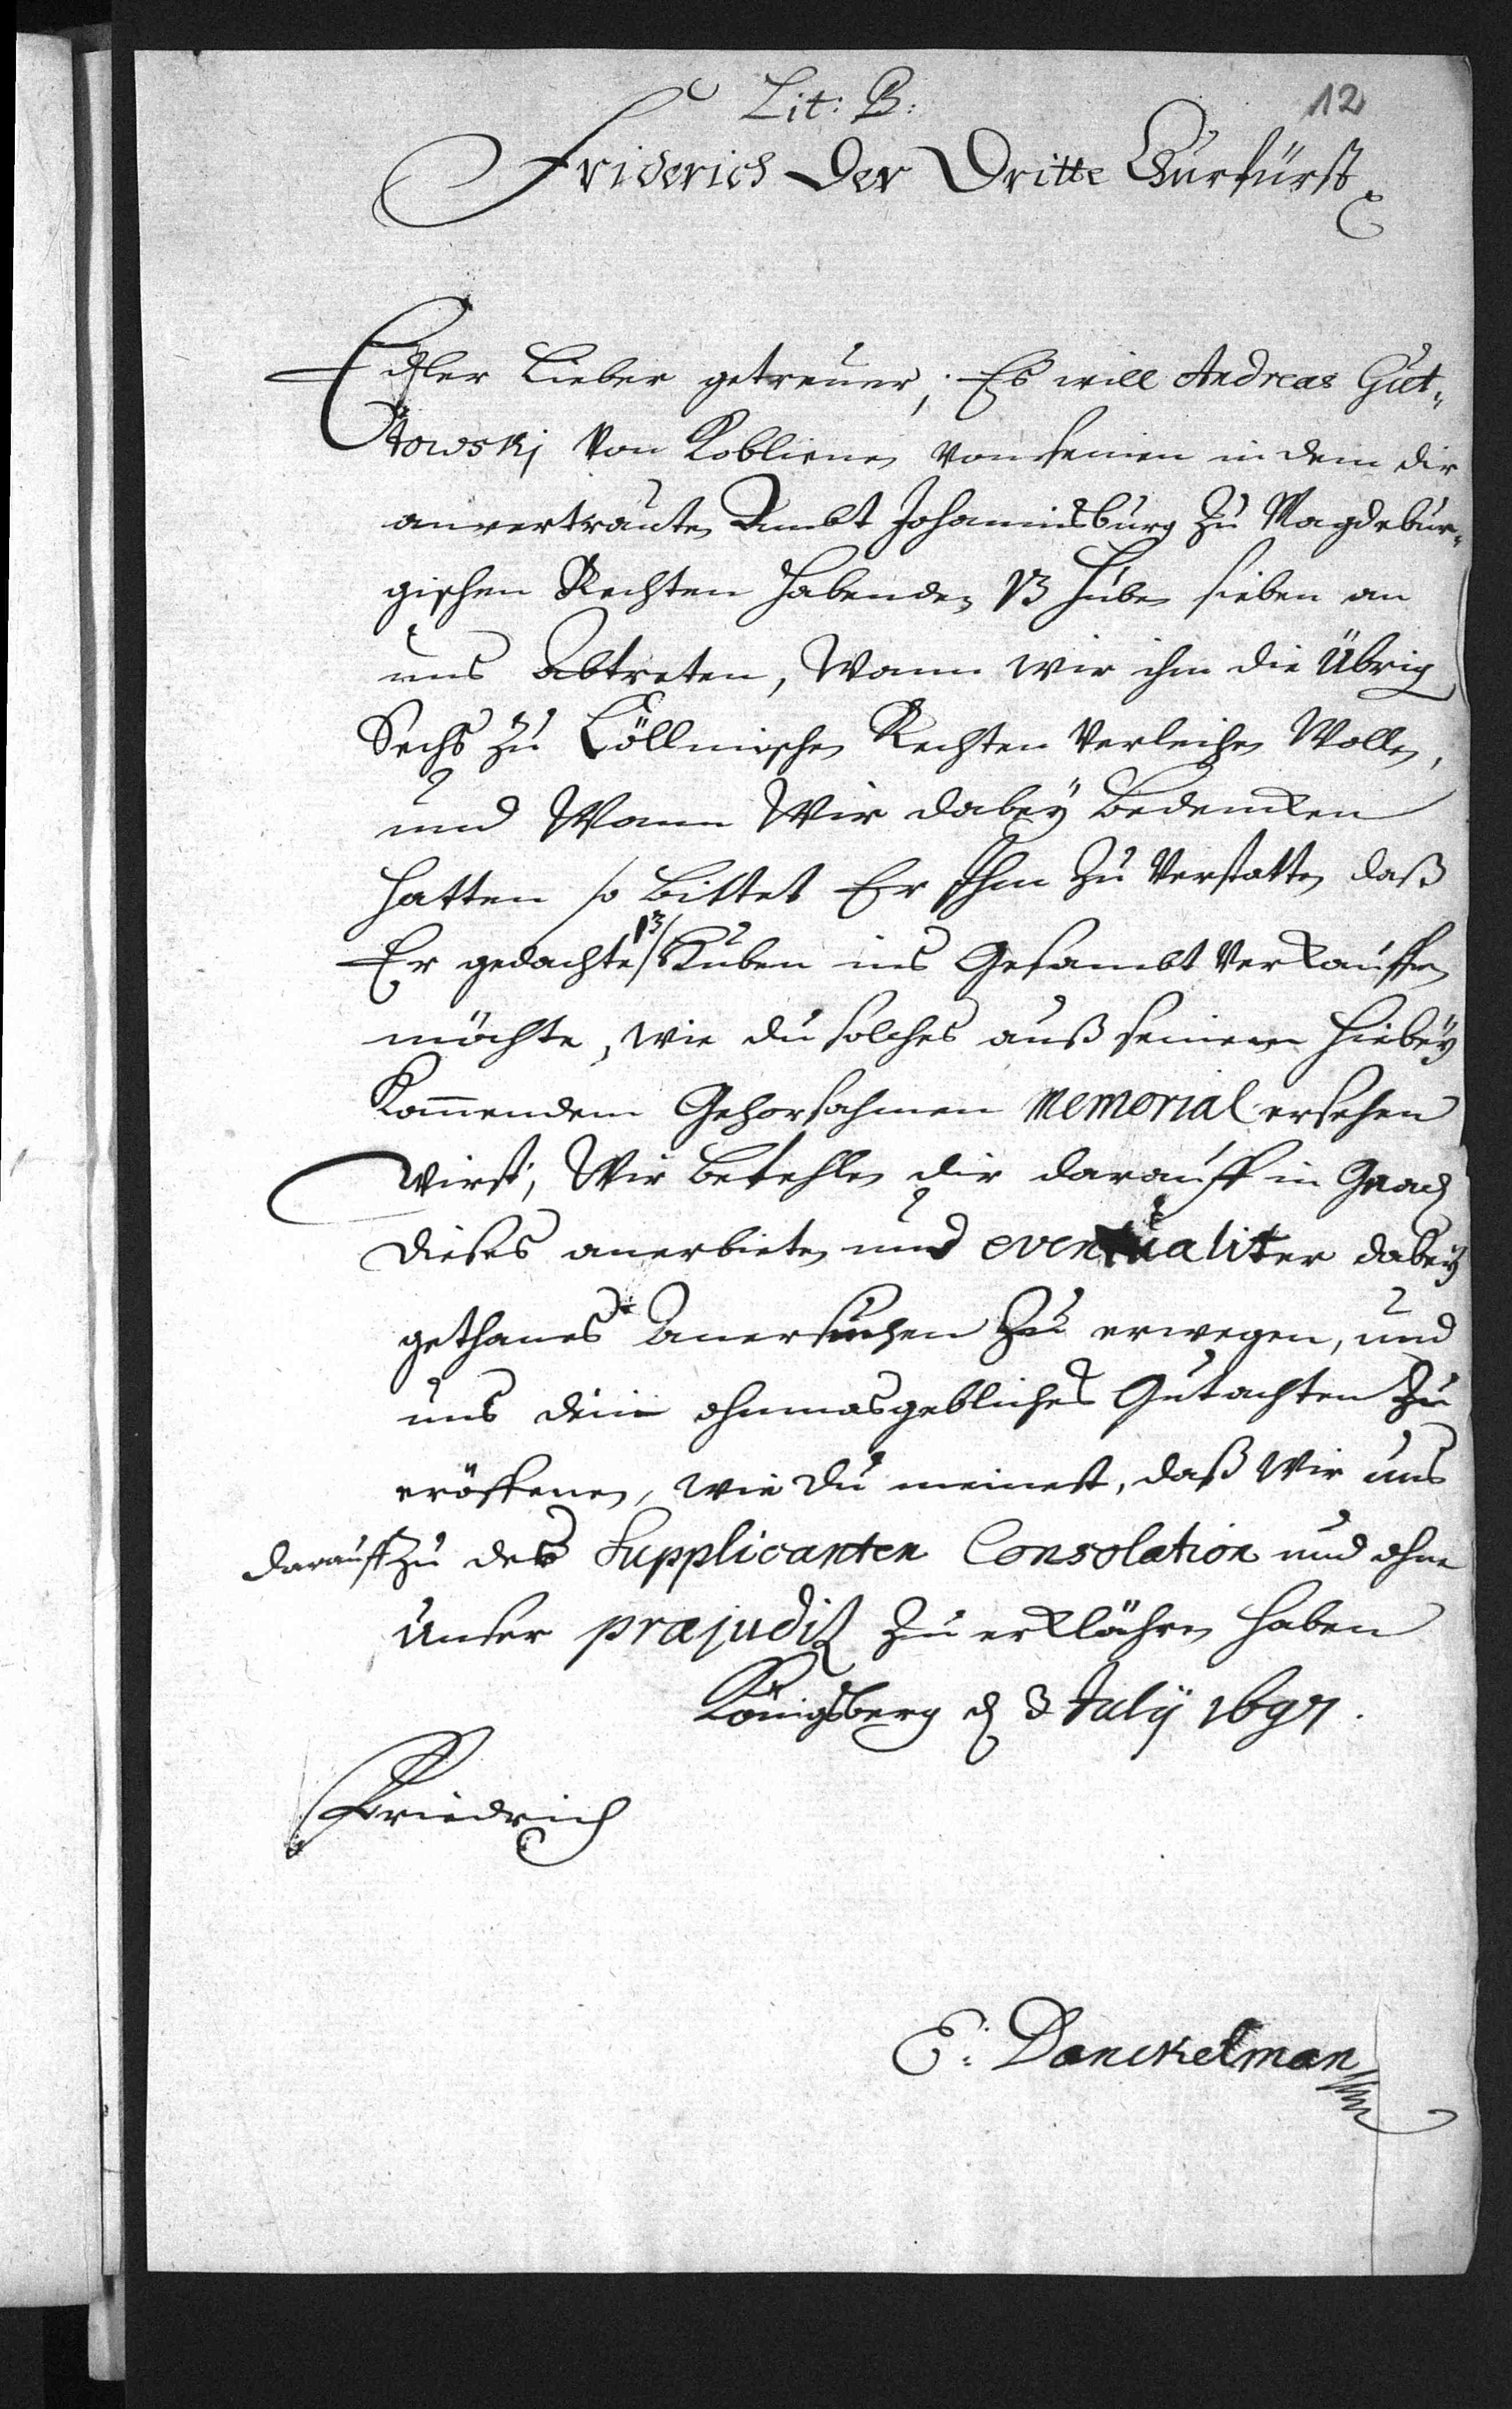 Lit: B:
12
Friderich Der Dritte Churfürst
Edler Lieber getreuer; Es will Andreas Gut-
towskj Von Koblinen von seinen in dem dir
anvertrauten Ambt Johannisburg zu Magdebur-
gischen Rechten habenden 13 Huben sieben an
uns Abtreten, Wann wir ihm die Übrig
Sechs zu Cöllmischen Rechten Verleihen Wollen,
und Wann Wir dabeÿ Bedencken
hatten so Bittet Er Ihm zu Verstatten, daß
Er gedachte 13 Huben ins Gesambt Verkauffen
möchte, wie du solches auß seinem hiebeÿ
Kommendem Gehorsahmen Memorial ersehen
Wirst; Wir Befehlen dir darauff in Gnad
dieses anerbieten und eventualiter dabeÿ
gethanes Anersuchen zu erwegen, und
uns dein ohnmasgebliches Gutachten zu
eröffenen, wie du meinest, daß Wir uns
darauff zu des Supplicanten Consolation und ohne
Unser præjudiz zu erklähren haben
Königsberg d 3 Julÿ 1697.
Friedrich
E: Danckelman